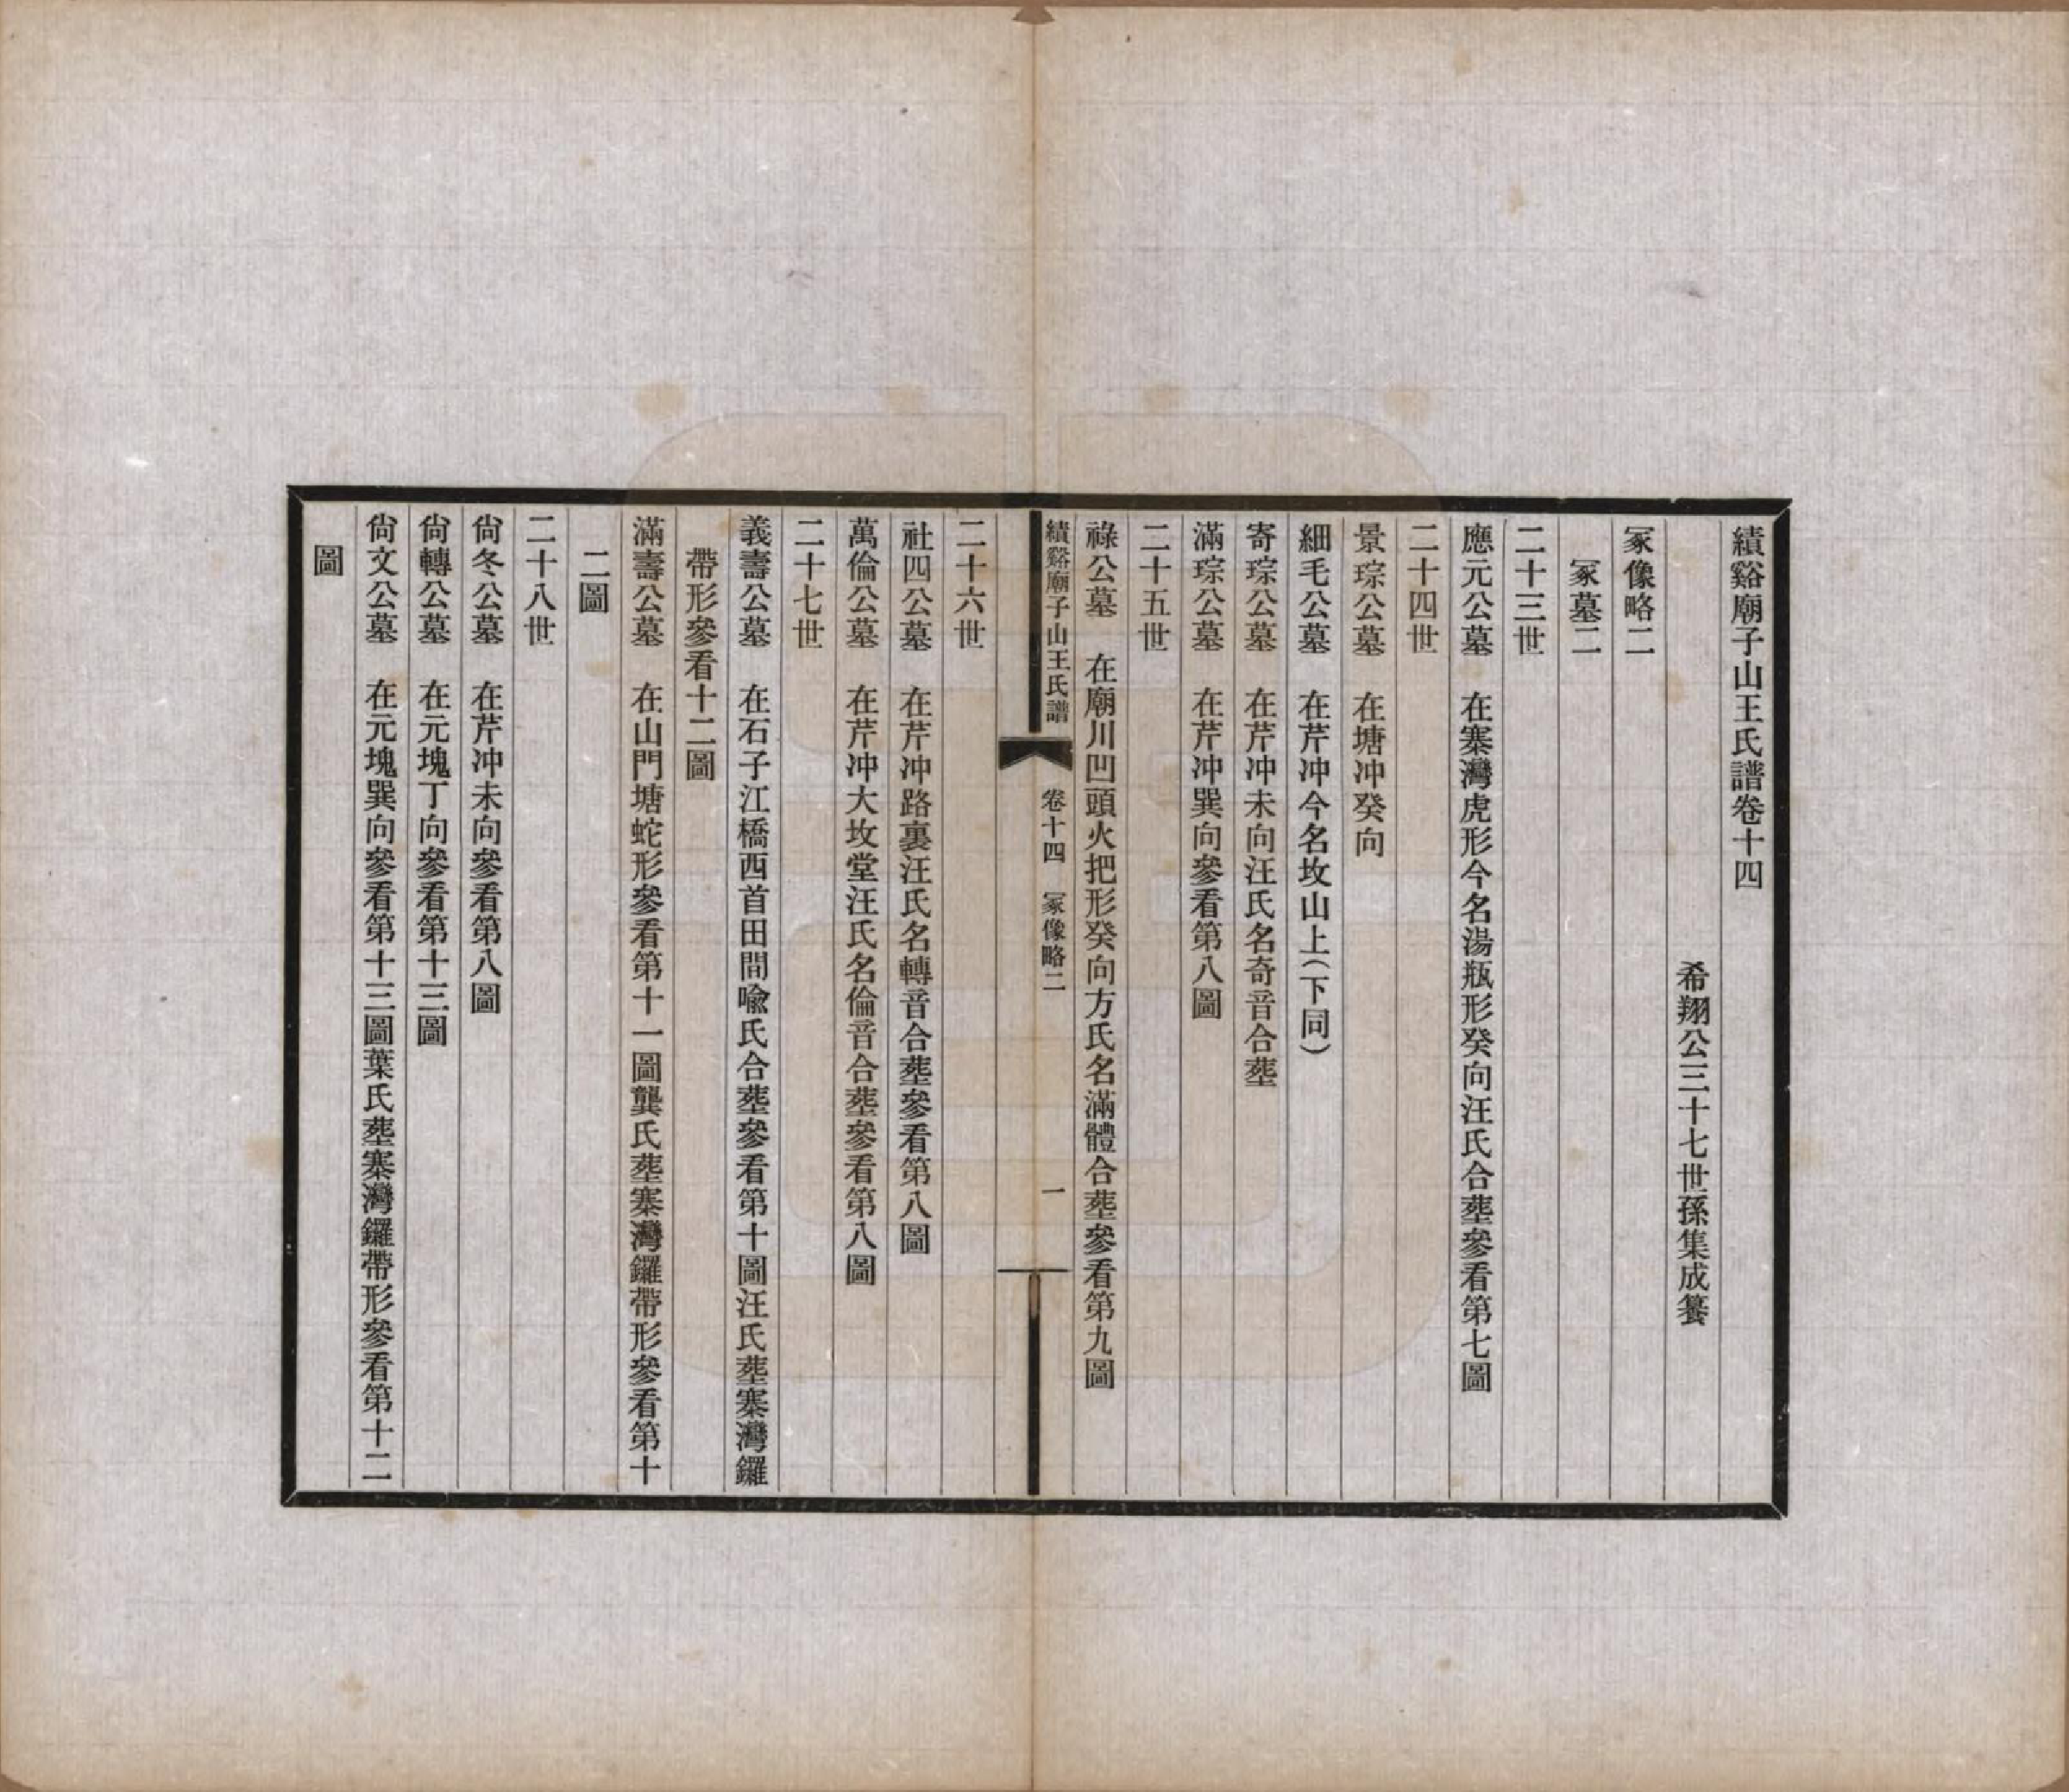 績谿廟子山王氏譜卷十四
希翔公三十七世孫集成纂
冢像略二
冢墓二
二十三世
應元公墓　在寨灣虎形今名湯瓶形癸向汪氏合塟參看第七圖
二十四世
景琮公墓　在塘冲癸向
細毛公墓　在芹冲今名坟山上（下同）
寄琮公墓　在芹冲未向汪氏名奇音合塟
滿琮公墓　在芹冲巽向參看第八圖
二十五世
祿公墓　在廟川凹頭火把形癸向方氏名滿體合塟參看第九圖
績谿廟子山王氏譜　卷十四　冢像略二　一
二十六世
社四公墓　在芹冲路裏汪氏名轉音合塟參看第八圖
萬倫公墓　在芹冲大坟堂汪氏名倫音合塟參看第八圖
二十七世
義壽公墓　在石子江橋西首田間喩氏合塟參看第十圖汪氏塟寨灣鑼
帶形參看十二圖
滿壽公墓　在山門塘蛇形參看第十一圖龔氏塟寨灣鑼帶形參看第十
二圖
二十八世
尙冬公墓　在芹冲未向參看第八圖
尙轉公墓　在元塊丁向參看第十三圖
尙文公墓　在元塊巽向參看第十三圖葉氏塟寨灣鑼帶形參看第十二
圖